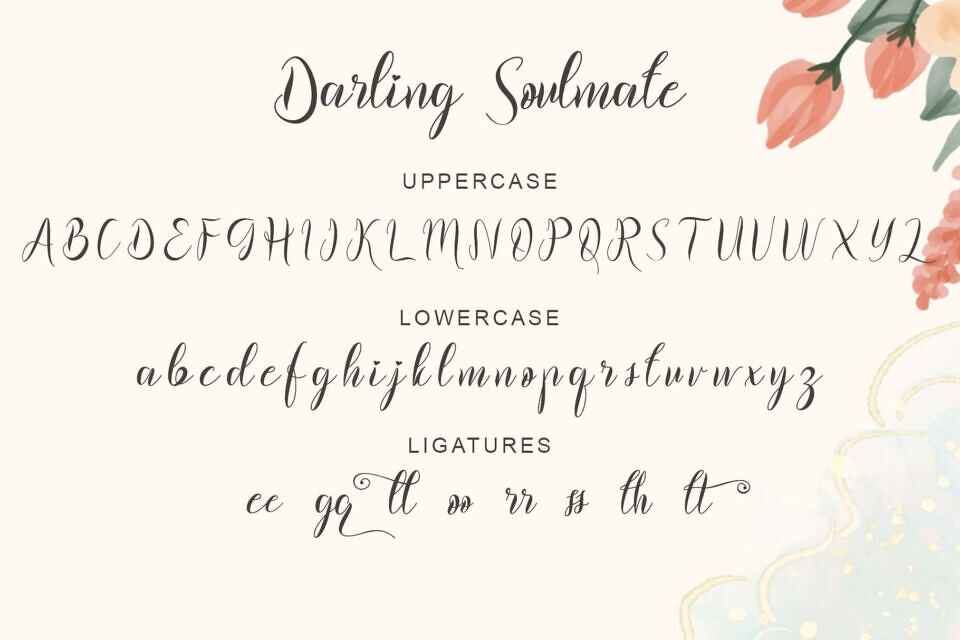 Darling Soulmate
UPPERCASE
ABCDEFGHIJKLMNOPQRSTUVWXYZ
LOWERCASE
abcdefghijklmnopqrstuvwxyz
LIGATURES
ee gg ll oo rr ss th tt